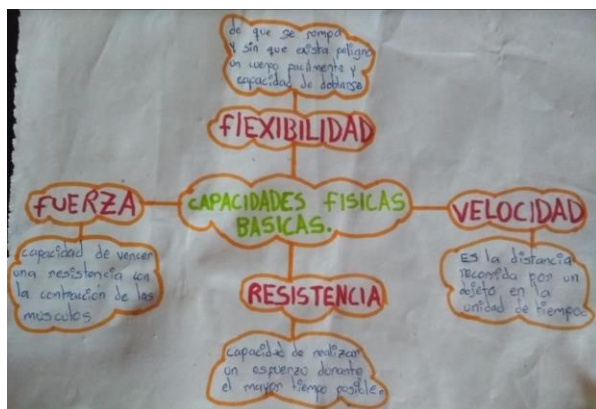 de que se rompa
y sin que exista peligro
un cuerpo facilmente y
capacidad de doblarse
flEXIBILIDAD
fUERZA
CAPACIDADES FISICAS
BASICAS.
VELOCIDAD
capacidad de vencer
una resistencia con
la contración de los
músculos
Es la distancia
recorrida por un
objeto en la
unidad de tiempo
RESISTENCIA
capacidad de realizar
un esfuerzo durante
el mayor tiempo posible.